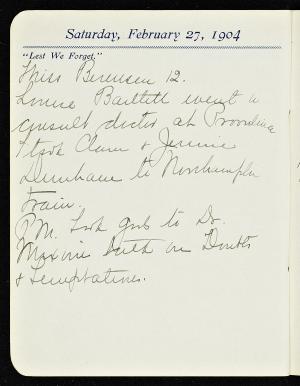 Saturday, February 27, 1904
"Lest We Forget."
Miss Berensen 12.
Louise Bartlett went to
consult doctor at Providence
I took Clara & Jennie
Dunham to Northampton
train.
P.M. Took girls to Dr.
talk on Doubts
& Temptations.